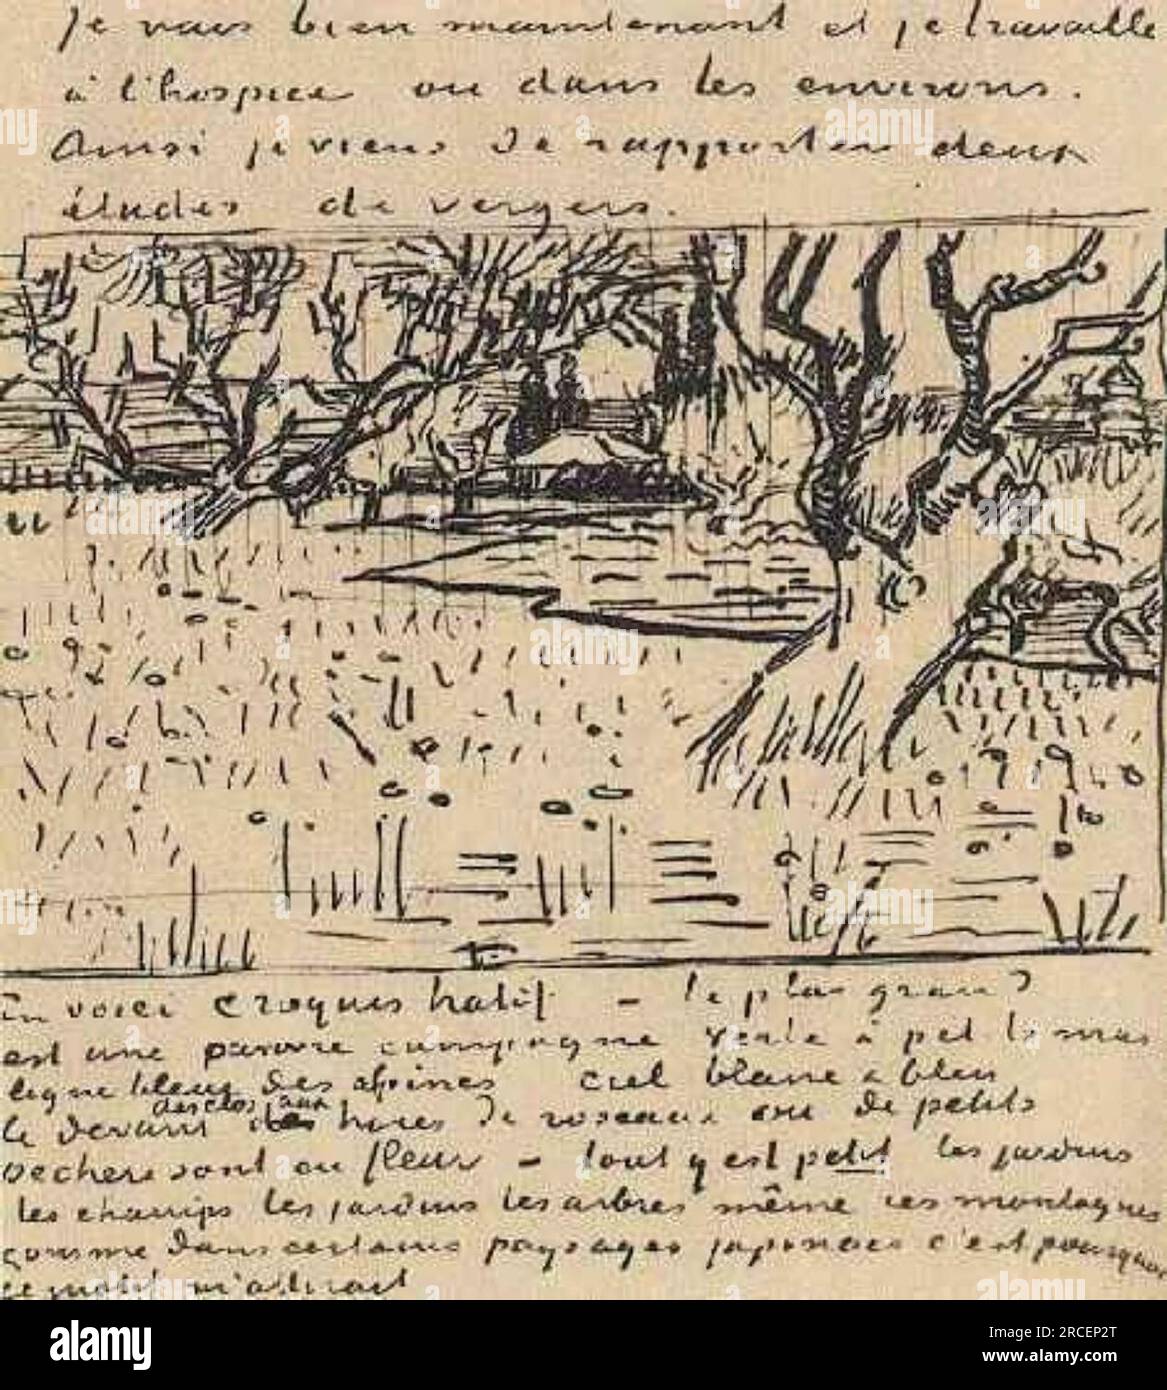 je vais bien maintenant et je travaille
à l'hospice ou dans les environs.
Ainsi je viens de rapporter deux
études de vergers.
En voici croquis hatif – le plus grand
est une pauvre campagne verte à petits mas
ligne bleue des alpines ciel blanc & bleu
le devant des clos aux haies de roseaux ou de petits
pechers sont en fleur – tout y est petit les jardins
les champs les jardins les arbres même ces montagnes
comme dans certains paysages japonais c'est pourquoi
ce motif m'attirait
alamy
Image ID: 2RCEP2T
www.alamy.com